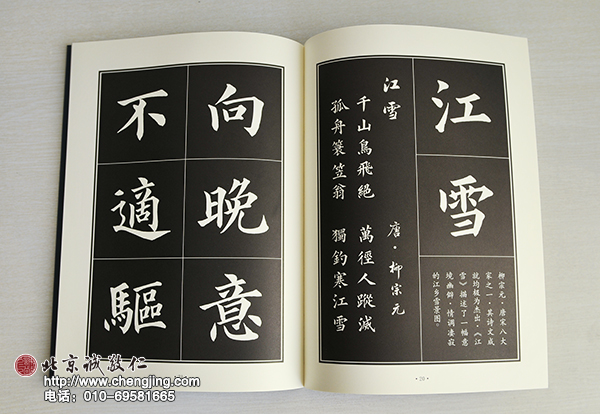 江雪
柳宗元，唐宋八大
家之一，其诗文成
就均极为杰出，《江
雪》描述了一幅意
境幽僻，情调凄寂
的江乡雪景图。
江雪 唐·柳宗元
千山鳥飛絕 萬徑人蹤滅
孤舟簑笠翁 獨釣寒江雪
向晚意
不適驅
北京诚敬仁
http://www.chengjing.com
电话：010-69581665